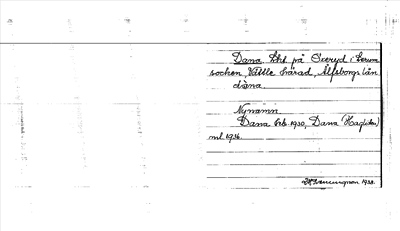 Dana, lht på Sceryd i Lerum
socken, Vättle härad, Älfsborgs län
dàna.
Nynamn
Dana frb. 1930, Dana (Hagfeldt)
ml. 1936.
1938.